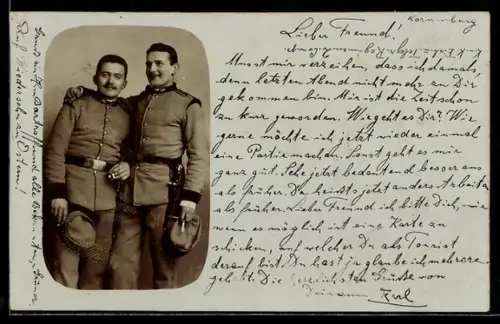 Korneuburg
Lieber Freund!
Musst mir verzeihen, dass ich damals,
denn letzten Abend nicht mehr zu Dir
gekommen bin. Mir ist die Zeit schon
zu kurz geworden. Wie geht es Dir? Wie
gerne möchte ich jetzt wieder einmal
eine Partie machen. Sonst geht es mir
ganz gut. Sehe jetzt bedeutend besser aus
als früher. Da heissts jetzt anders Arbeiten
als früher. Lieber Freund ich bitte Dich, wie
wenn es möglich ist eine Karte zu
schicken, auf welcher Du als Tourist
darauf bist. Du hast ja glaube ich mehrere
gehabt. Die herzlichsten Grüsse von
Deinem Karl
Gruss an und alle Bekannten,
Auf Wiedersehn zu Ostern!